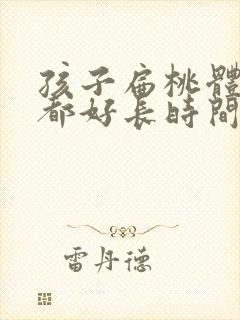 孩子扁桃體
都好長時間
雷丹德